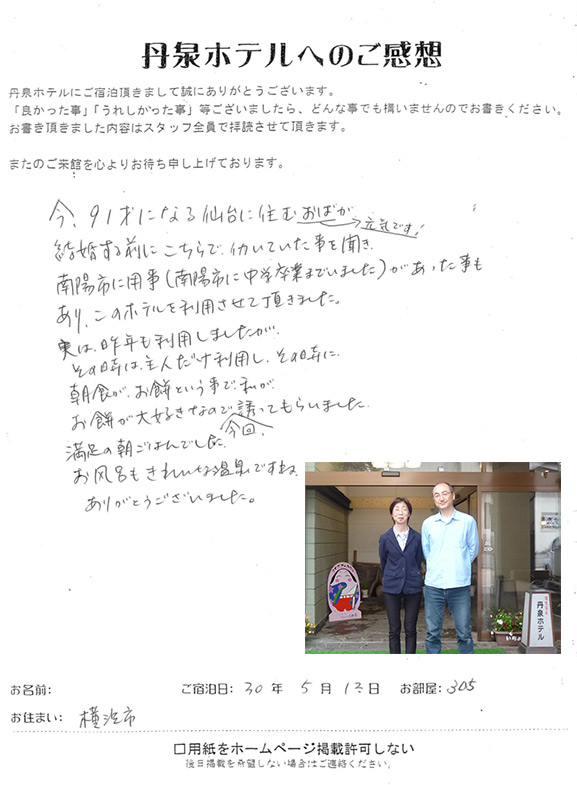 丹泉ホテルへのご感想
丹泉ホテルにご宿泊頂きまして誠にありがとうございます。
「良かった事」「うれしかった事」等ございましたら、どんな事でも構いませんのでお書きください。
お書き頂きました内容はスタッフ全員で拝読させて頂きます。
またのご来館を心よりお待ち申し上げております。
今、91才になる仙台に住むおばが
元気です!
結婚する前にこちらで、仂いていた事を聞き、
南陽市に用事(南陽市に中学卒業までいました)があった事も
あり、このホテルを利用させて頂きました。
実は、昨年も利用しましたが、
その時は、主人だけ利用し、その時に、
朝食が、お餅という事で、私が、
お餅が大好きなので誘ってもらいました。
今回、
満足の朝ごはんでした。
お風呂もきれいな温泉ですね
ありがとうございました。
丹泉ホテル
お名前:
ご宿泊日: 30 年 5 月 13日 お部屋: 305
お住まい: 横浜市
☐用紙をホームページ掲載許可しない
後日掲載を希望しない場合はご連絡ください。